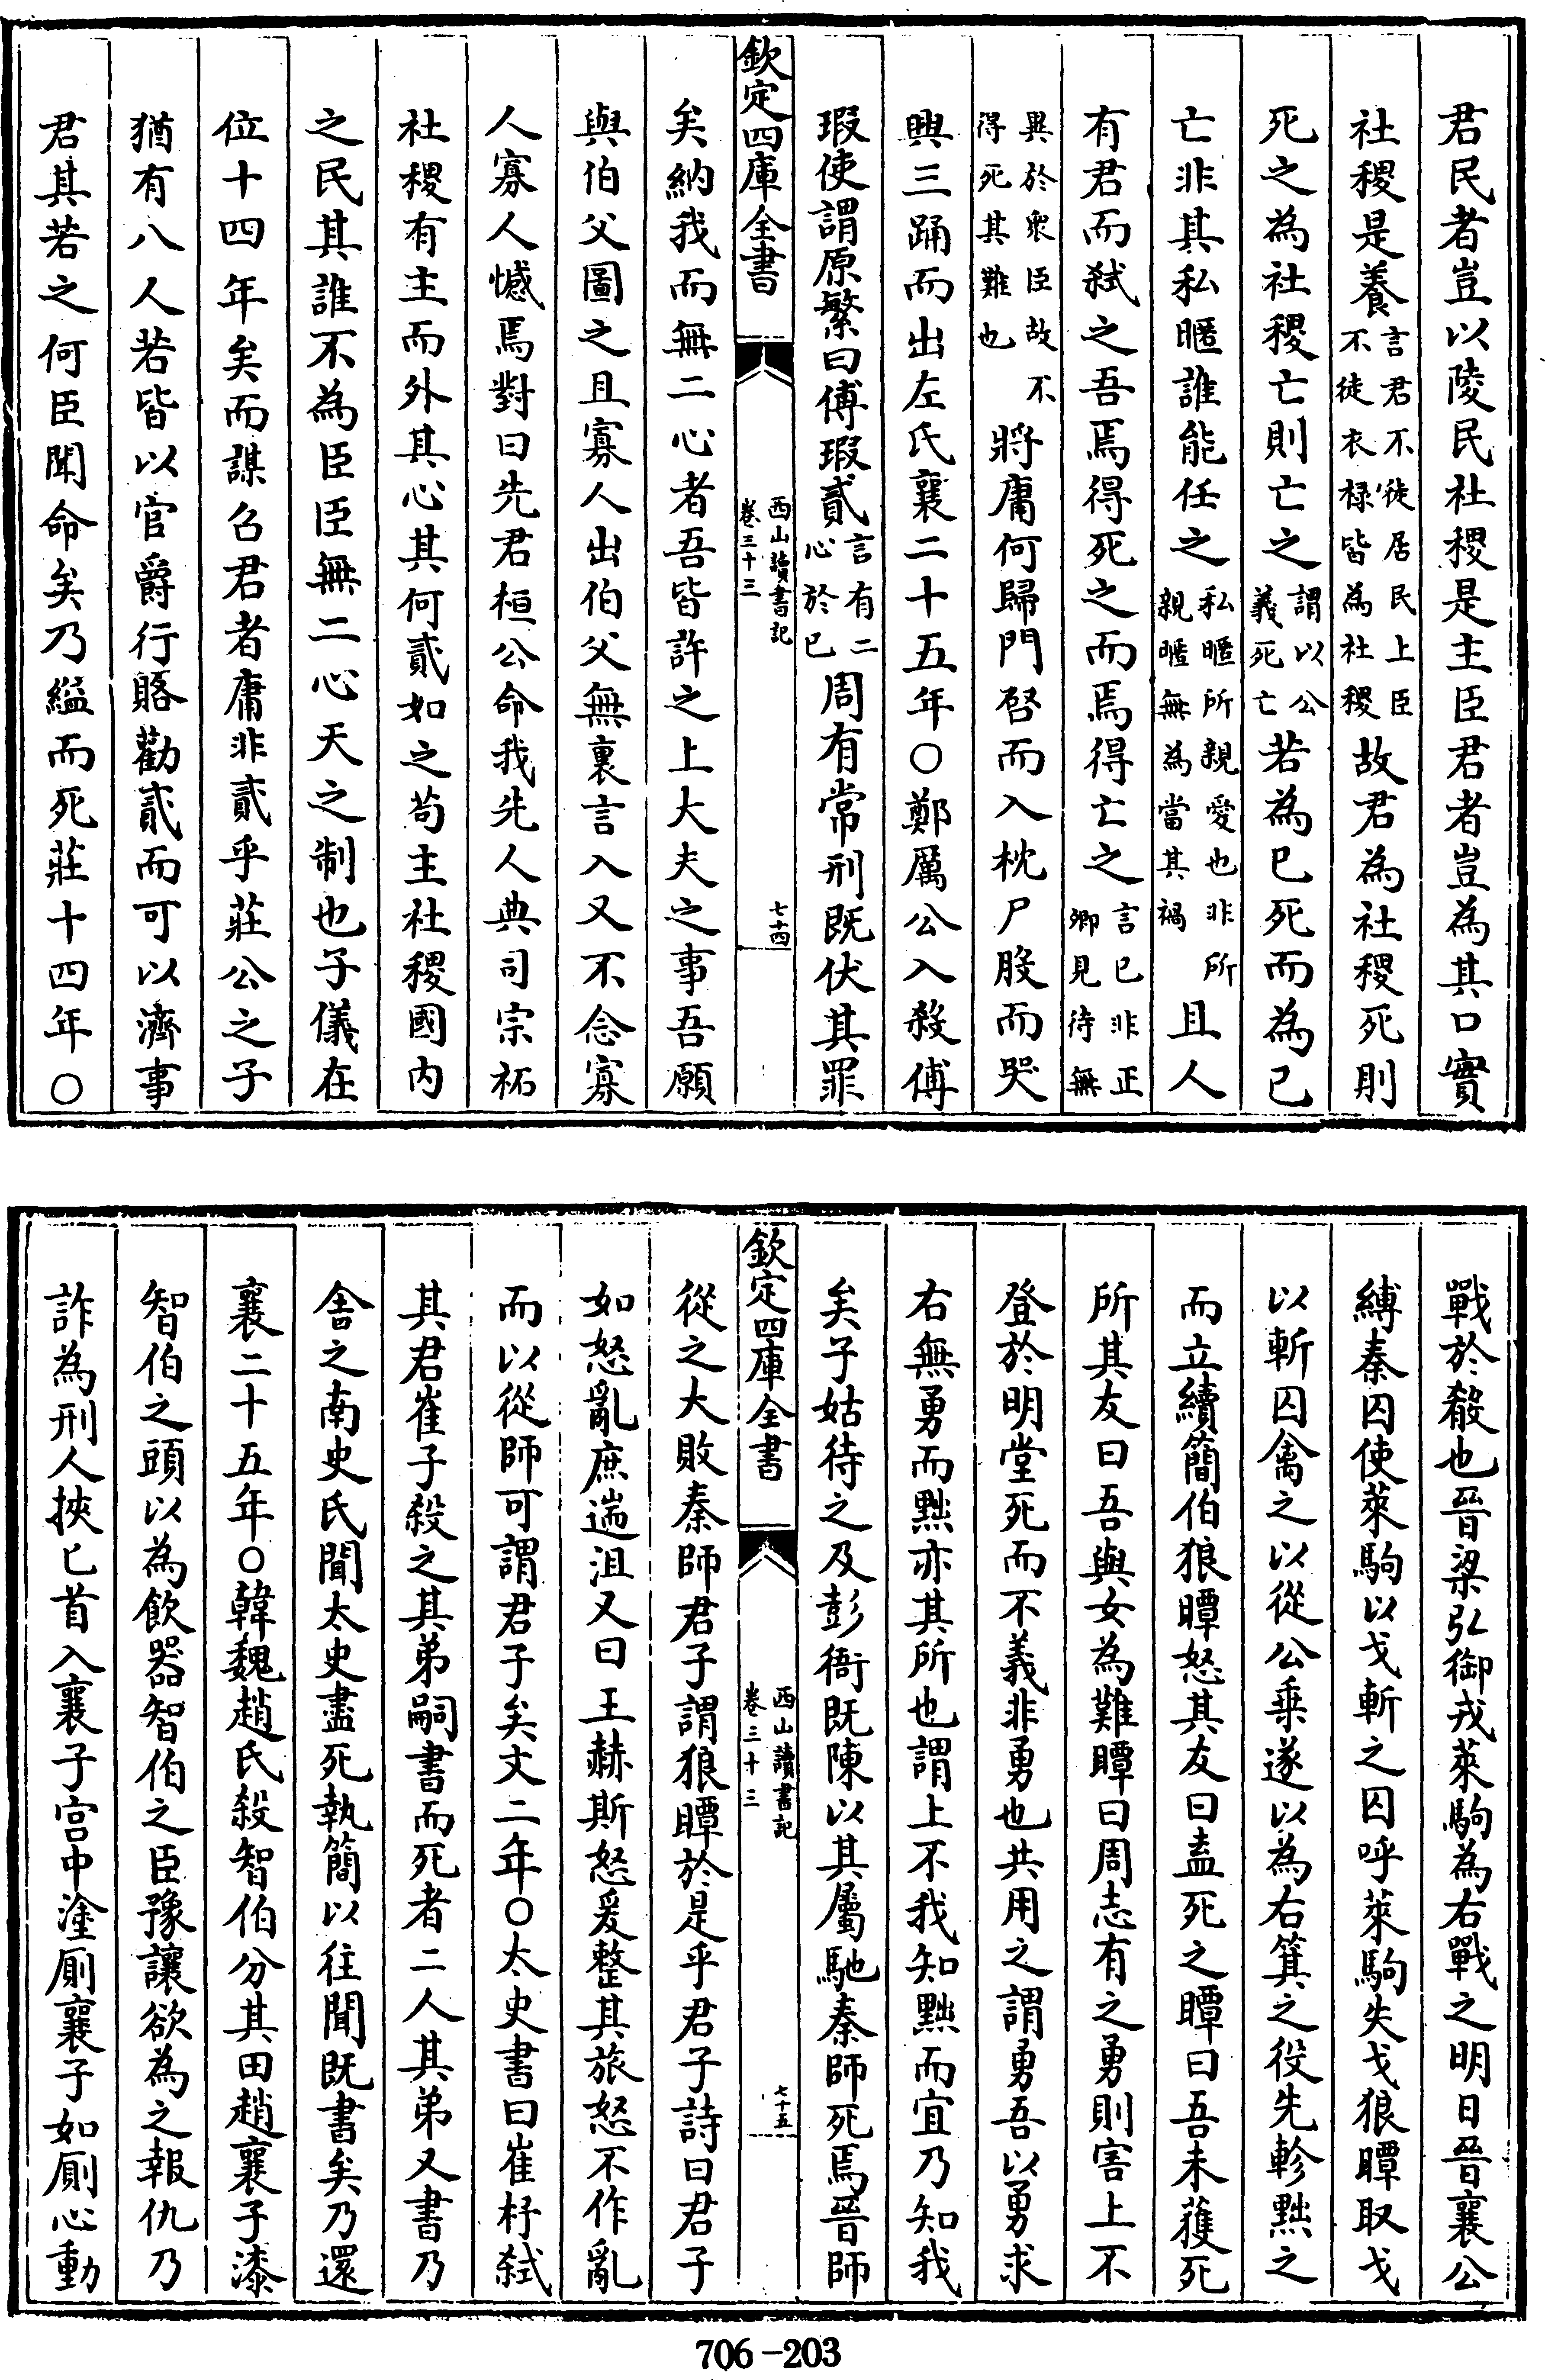 君民者豈以陵民社稷是主臣君者豈為其口實
社稷是養言君不徒居民上臣不徒衣祿皆為社稷故君為社稷死則
死之為社稷亡則亡之謂以公義死亡若為已死而為已
亡非其私暱誰能任之私暱所親愛也非所親暱無為當其禍且人
有君而弑之吾焉得死之而焉得亡之言已非正卿見待無
異於衆臣故不得死其難也將庸何歸門啓而入枕尸股而哭
興三踊而出左氏襄二十五年○鄭厲公入殺傅
瑕使謂原繁曰傅瑕貳言有二心於已周有常刑既伏其罪
欽定四庫全書
西山讀書記
卷三十三
七十四
矣納我而無二心者吾皆許之上大夫之事吾願
與伯父圖之且寡人出伯父無裏言入又不念寡
人寡人憾焉對曰先君桓公命我先人典司宗祏
社稷有主而外其心其何貳如之苟主社稷國内
之民其誰不為臣臣無二心天之制也子儀在
位十四年矣而謀召君者庸非貳乎莊公之子
猶有八人若皆以官爵行賂勸貳而可以濟事
君其若之何臣聞命矣乃縊而死莊十四年○
戰於殽也晉梁弘御戎萊駒為右戰之明日晉襄公
縛秦囚使萊駒以戈斬之囚呼萊駒失戈狼瞫取戈
以斬囚禽之以從公乗遂以為右箕之役先軫黜之
而立續簡伯狼瞫怒其友曰盍死之瞫曰吾未獲死
所其友曰吾與女為難瞫曰周志有之勇則害上不
登於明堂死而不義非勇也共用之謂勇吾以勇求
右無勇而黜亦其所也謂上不我知黜而宜乃知我
矣子姑待之及彭衙既陳以其屬馳秦師死焉晉師
欽定四庫全書
西山讀書記
卷三十三
七十五
從之大敗秦師君子謂狼瞫於是乎君子詩曰君子
如怒亂庶遄沮又曰王赫斯怒爰整其旅怒不作亂
而以從師可謂君子矣文二年○太史書曰崔杼弑
其君崔子殺之其弟嗣書而死者二人其弟又書乃
舍之南史氏聞太史盡死執簡以往聞既書矣乃還
襄二十五年○韓魏趙氏殺智伯分其田趙襄子漆
智伯之頭以為飲器智伯之臣豫讓欲為之報仇乃
詐為刑人挾匕首入襄子宫中塗厠襄子如厠心動
706-203